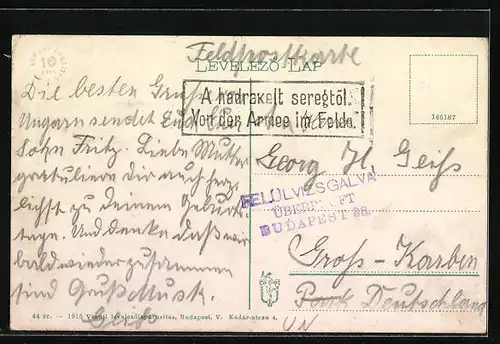 Feldpostkarte
LEVELEZŐ LAP
A hadrakelt seregtől.
Von der Armee im Felde.
165187
Die besten Grüße
Ungarn sendet Euch
Sohn Fritz. Liebe Mutter
gratuliere Dir auch herz
lichst zu deinem Geburts
tage. Und denke daß wir
bald wieder zusammen
sind Gruß
Georg H. Geiß
FELÜLVIZSGÁLVA
ÜBERPRÜFT
BUDAPEST
Groß-Karben
Deutschland
44 sz. — 1915 Budapest, V. Kádár-utcza 4.